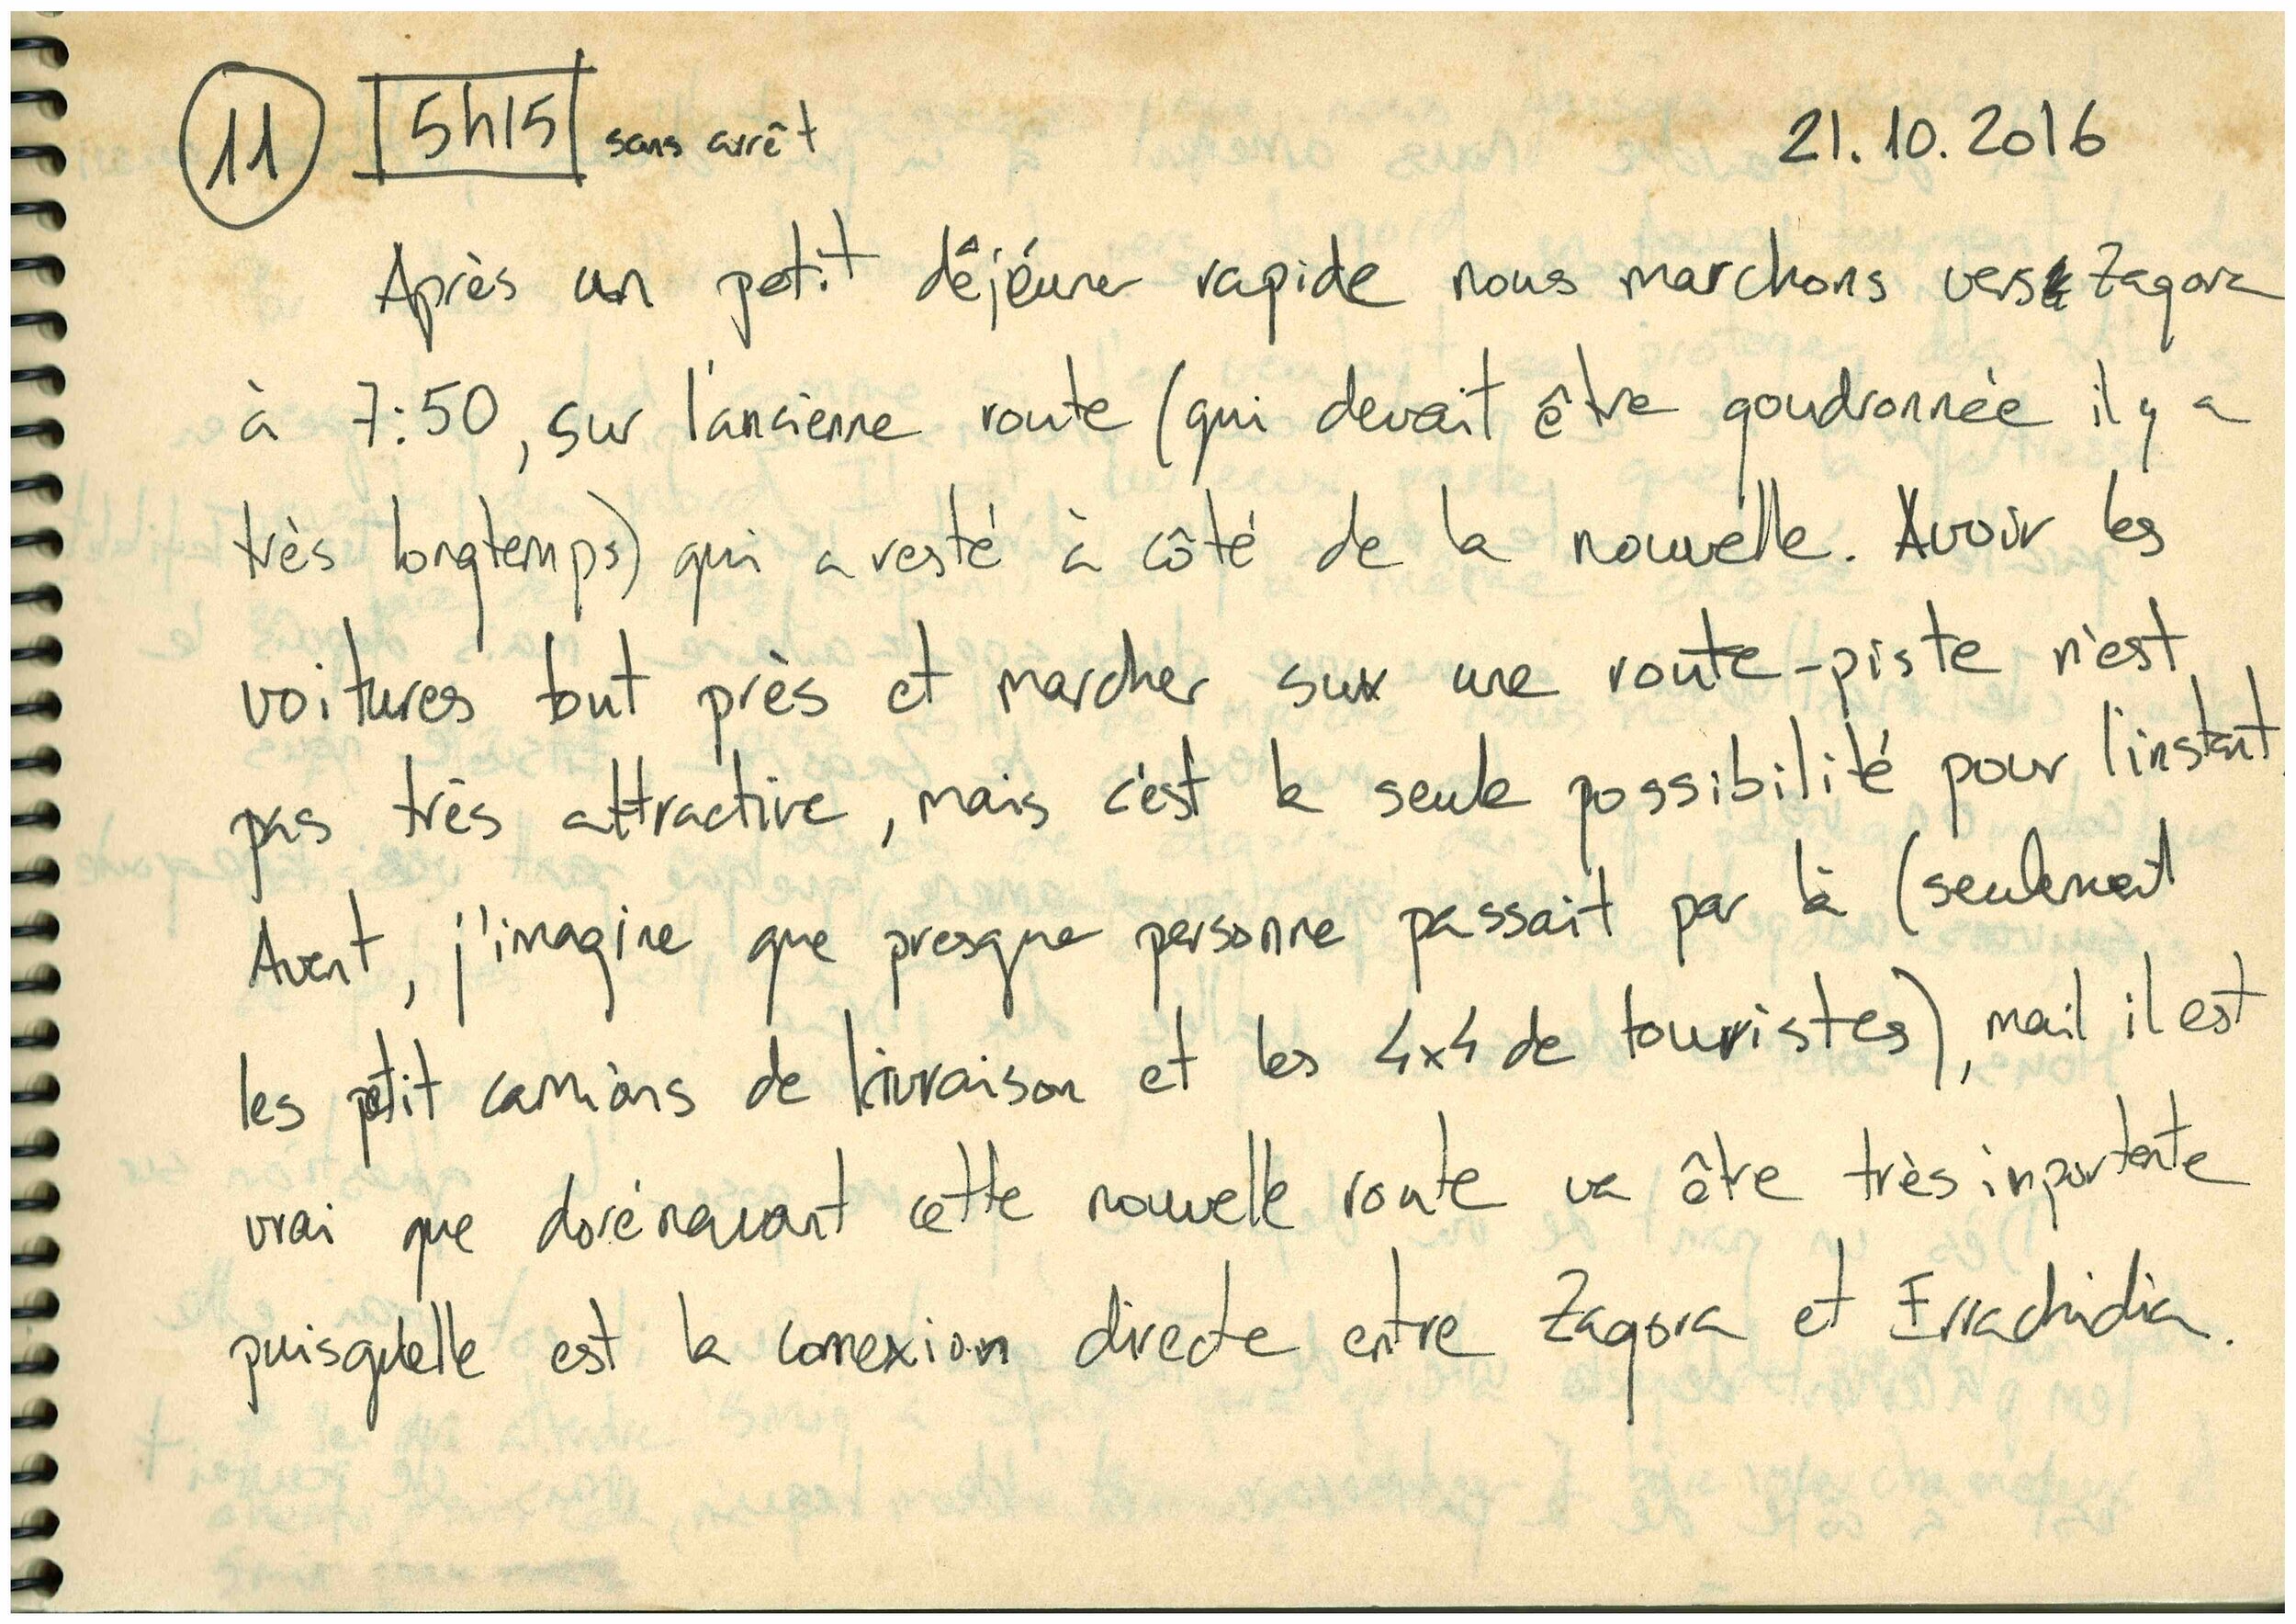 11 5h15 sans arrêt 21.10.2016
Après un petit dêjéuner rapide nous marchons vers Zagora
à 7:50, sur l'ancienne route (qui devait être goudronnée il y a
très longtemps) qui a resté à côté de la nouvelle. Avoir les
voitures tout près et marcher sur une route-piste n'est
pas très attractive, mais c'est la seule possibilité pour l'instant.
Avant, j'imagine que presque personne passait par là (seulement
les petit camions de livraison et les 4x4 de touristes), mail il est
vrai que dorénavant cette nouvelle route va être très inportante
puisqu'elle est la connexion directe entre Zagora et Errachidia.